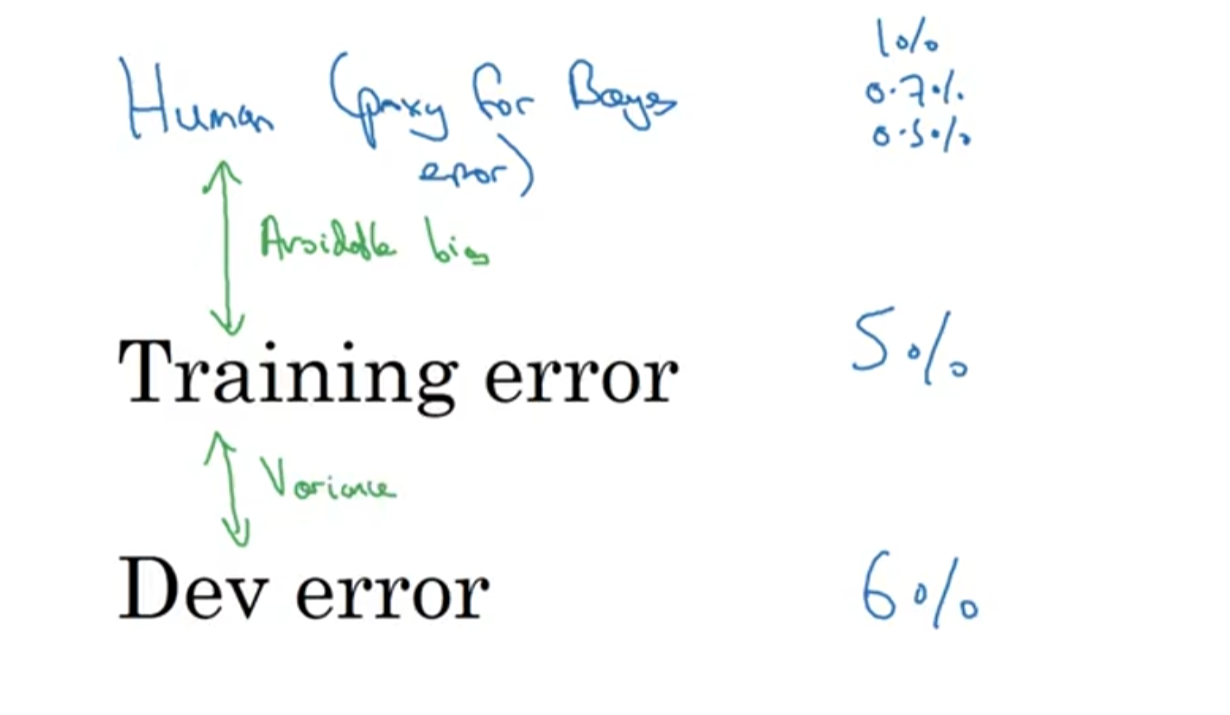 Human (proxy for Bayes
error)
1%
0.7%
0.5%
Avoidable bias
Training error
5%
Variance
Dev error
6%